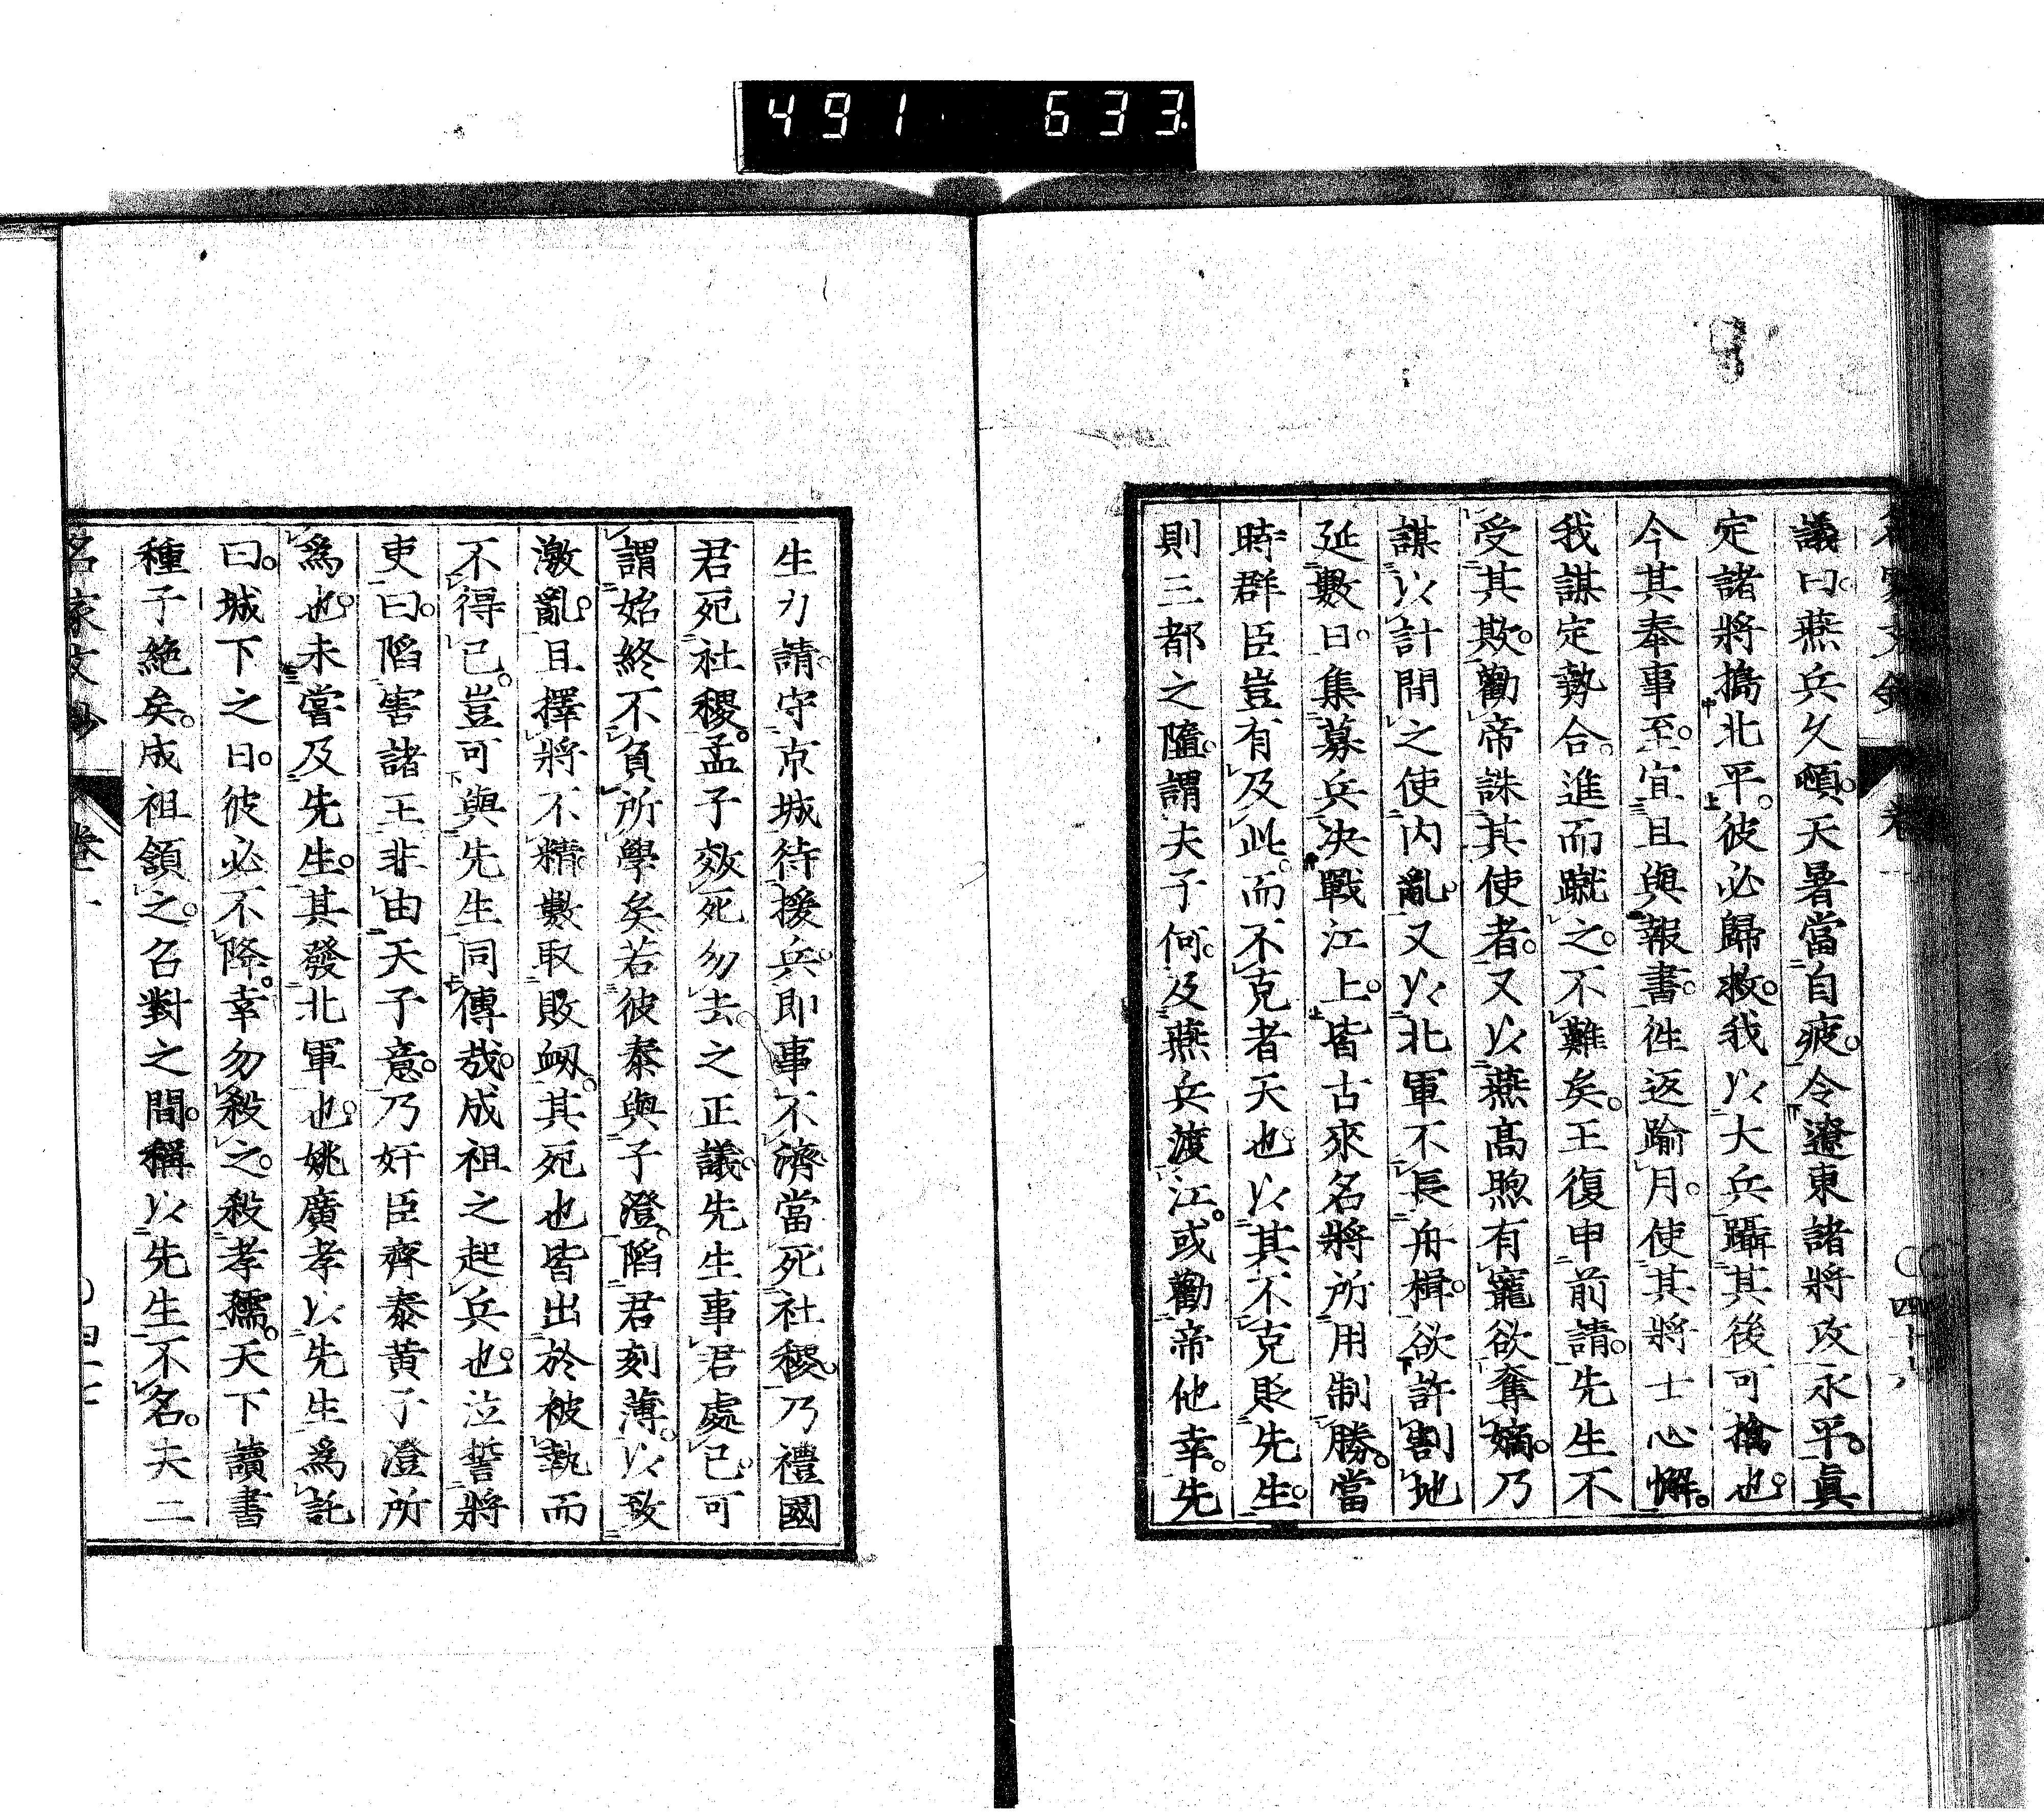 491 633
議曰。燕兵久頓。天暑當自疲。令遼東諸將攻永平。眞
定諸將搗北平。彼必歸救。我以大兵躡其後可擒也。
今其奉事至。宜且與報書。徃返踰月。使其將士心懈。
我謀定勢合。進而蹴之。不難矣。王復申前請。先生不
受其欺。勸帝誅其使者。又以燕高煦有寵欲奪嫡。乃
謀以計間之使內亂。又以北軍不長舟楫。欲許割地
延數日。集募兵决戰江上。皆古來名將所用制勝。當
時群臣豈有及此。而不克者天也。以其不克貶先生。
則三都之隨。謂夫子何。及燕兵渡江。或勸帝他幸。先
生力請。守京城待援兵。即事不濟當死社稷。乃禮國
君死社稷。孟子效死勿去。之正議。先生事君處已。可
謂始終不負所學矣若彼泰與子澄。陷君刻薄。以致
激亂。且擇將不精。數取敗衂。其死也皆出於被執而
不得已。豈可與先生同傳哉。成祖之起兵也。泣誓將
吏曰。陷害諸王非由天子意。乃奸臣齊泰黃子澄所
爲也。未嘗及先生。其發北軍也。姚廣孝以先生爲託
曰。城下之日。彼必不降。幸勿殺之。殺孝孺。天下讀書
種子絶矣。成祖頷之。召對之間。稱以先生不名。夫二
名家文抄 卷十